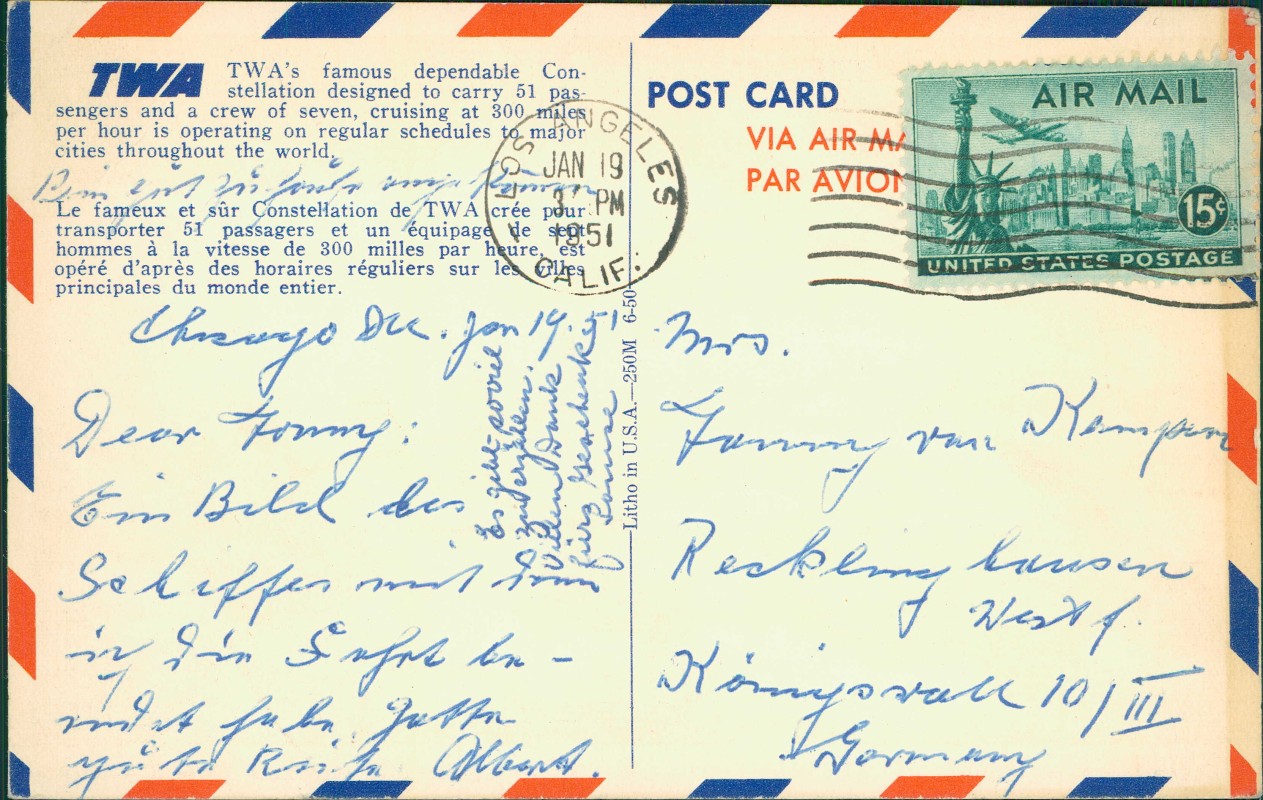 TWA TWA's famous dependable Con-
stellation designed to carry 51 pas-
sengers and a crew of seven, cruising at 300 miles
per hour is operating on regular schedules to major
cities throughout the world.
Bin gut zu Hause angekommen
Le fameux et sûr Constellation de TWA crée pour
transporter 51 passagers et un équipage de sept
hommes à la vitesse de 300 milles par heure, est
opéré d'après des horaires réguliers sur les villes
principales du monde entier.
Chicago Jan 19. 51
Dear Fanny:
Ein Bild des
Schiffes mit dem
ich die Fahrt be-
endet habe. Hatte
gute Reise Albert.
Es gibt soviel
zu erzählen.
Vielen Dank
fürs Geschenk
Litho in U.S.A.—250M 6-50
POST CARD
VIA AIR
PAR AVION
LOS ANGELES
JAN 19
3 PM
1951
CALIF.
AIR MAIL
15¢
UNITED STATES POSTAGE
Mrs.
Fanny van Kampen
Recklinghausen
Westf.
Königswall 10/III
Germany